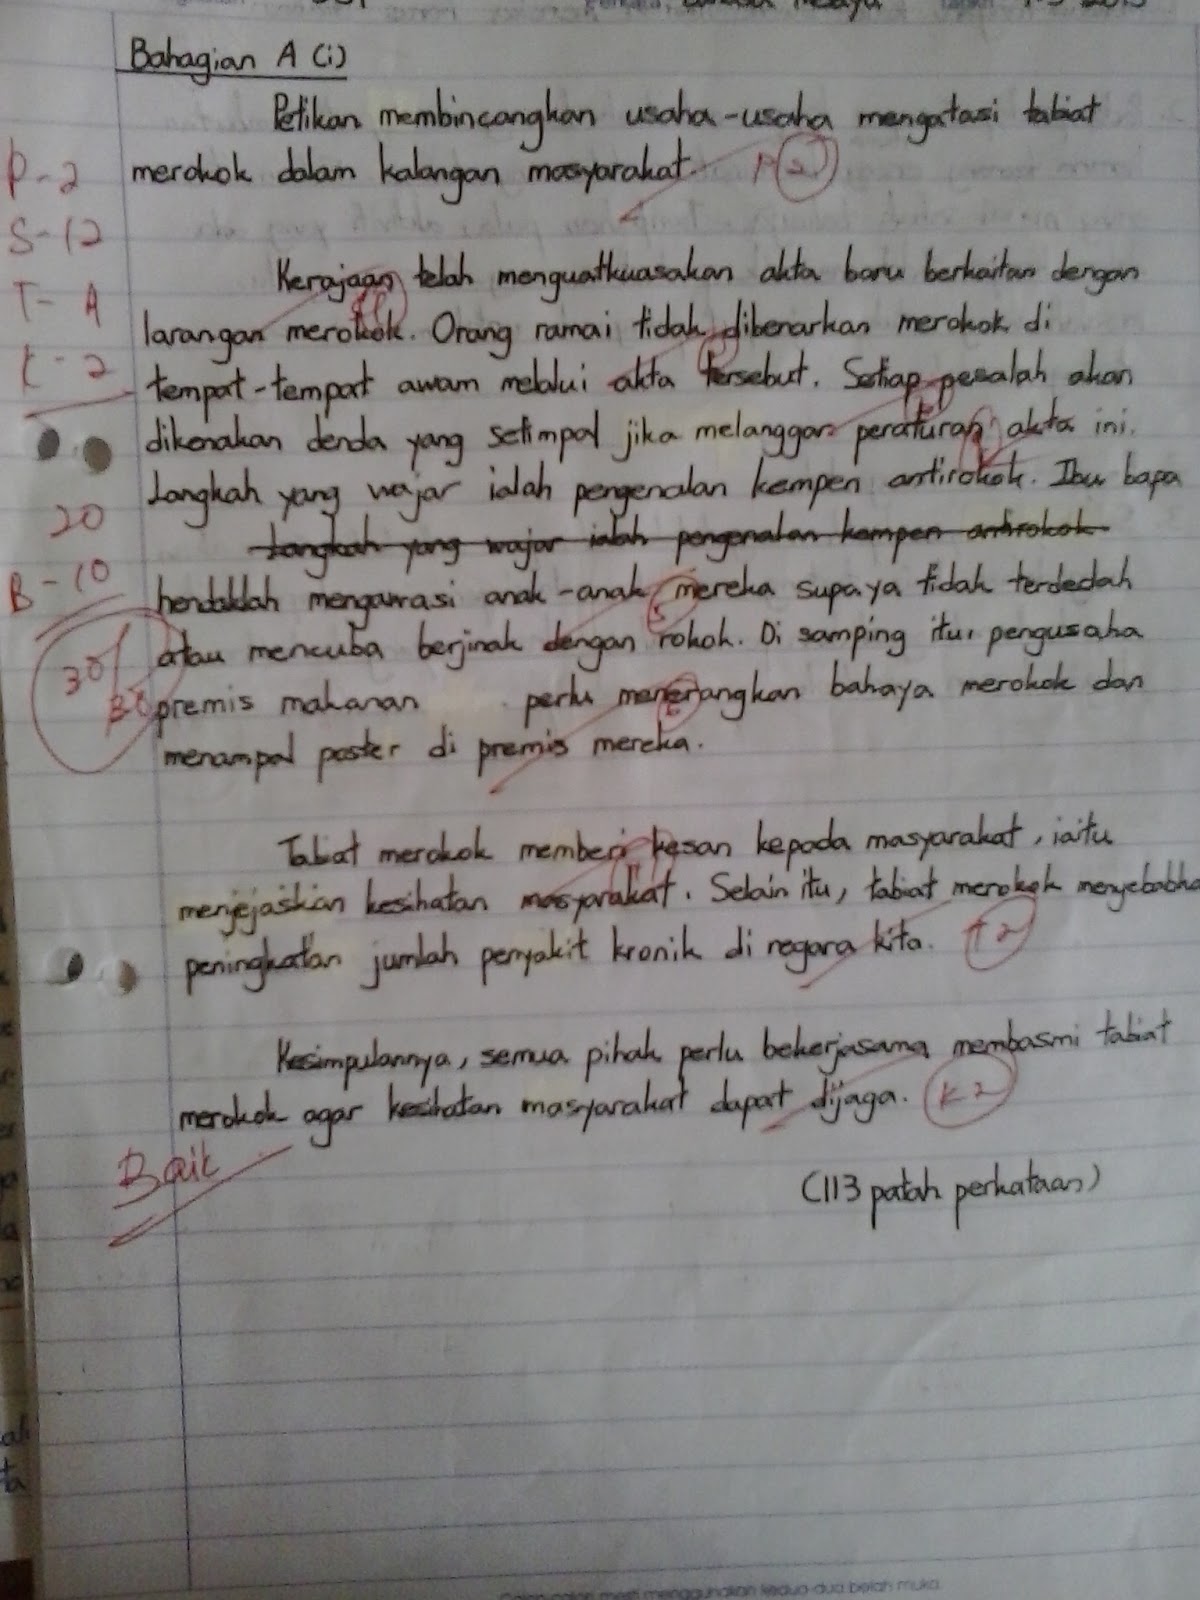 Bahasa Melayu
Bahagian A (i)
Petikan membincangkan usaha-usaha mengatasi tabiat
merokok dalam kalangan masyarakat. P 2
P - 2
S - 12
T - A
K - 2
20
B - 10
30/
30
Kerajaan telah menguatkuasakan akta baru berkaitan dengan
larangan merokok. Orang ramai tidak dibenarkan merokok di
tempat-tempat awam melalui akta tersebut. Setiap pesalah akan
dikenakan denda yang setimpal jika melanggar peraturan akta ini.
Langkah yang wajar ialah pengenalan kempen antirokok. Ibu bapa
Langkah yang wajar ialah pengenalan kempen antirokok
hendaklah mengawasi anak-anak mereka supaya tidak terdedah
atau mencuba berjinak dengan rokok. Di samping itu, pengusaha
premis makanan perlu menerangkan bahaya merokok dan
menampal poster di premis mereka.
5
6
Tabiat merokok memberi kesan kepada masyarakat, iaitu
menjejaskan kesihatan masyarakat. Selain itu, tabiat merokok menyebabka
peningkatan jumlah penyakit kronik di negara kita. T 2
Kesimpulannya, semua pihak perlu bekerjasama membasmi tabiat
merokok agar kesihatan masyarakat dapat dijaga. K 2
Baik
(113 patah perkataan)
Calon-calon mesti menggunakan kedua-dua belah muka